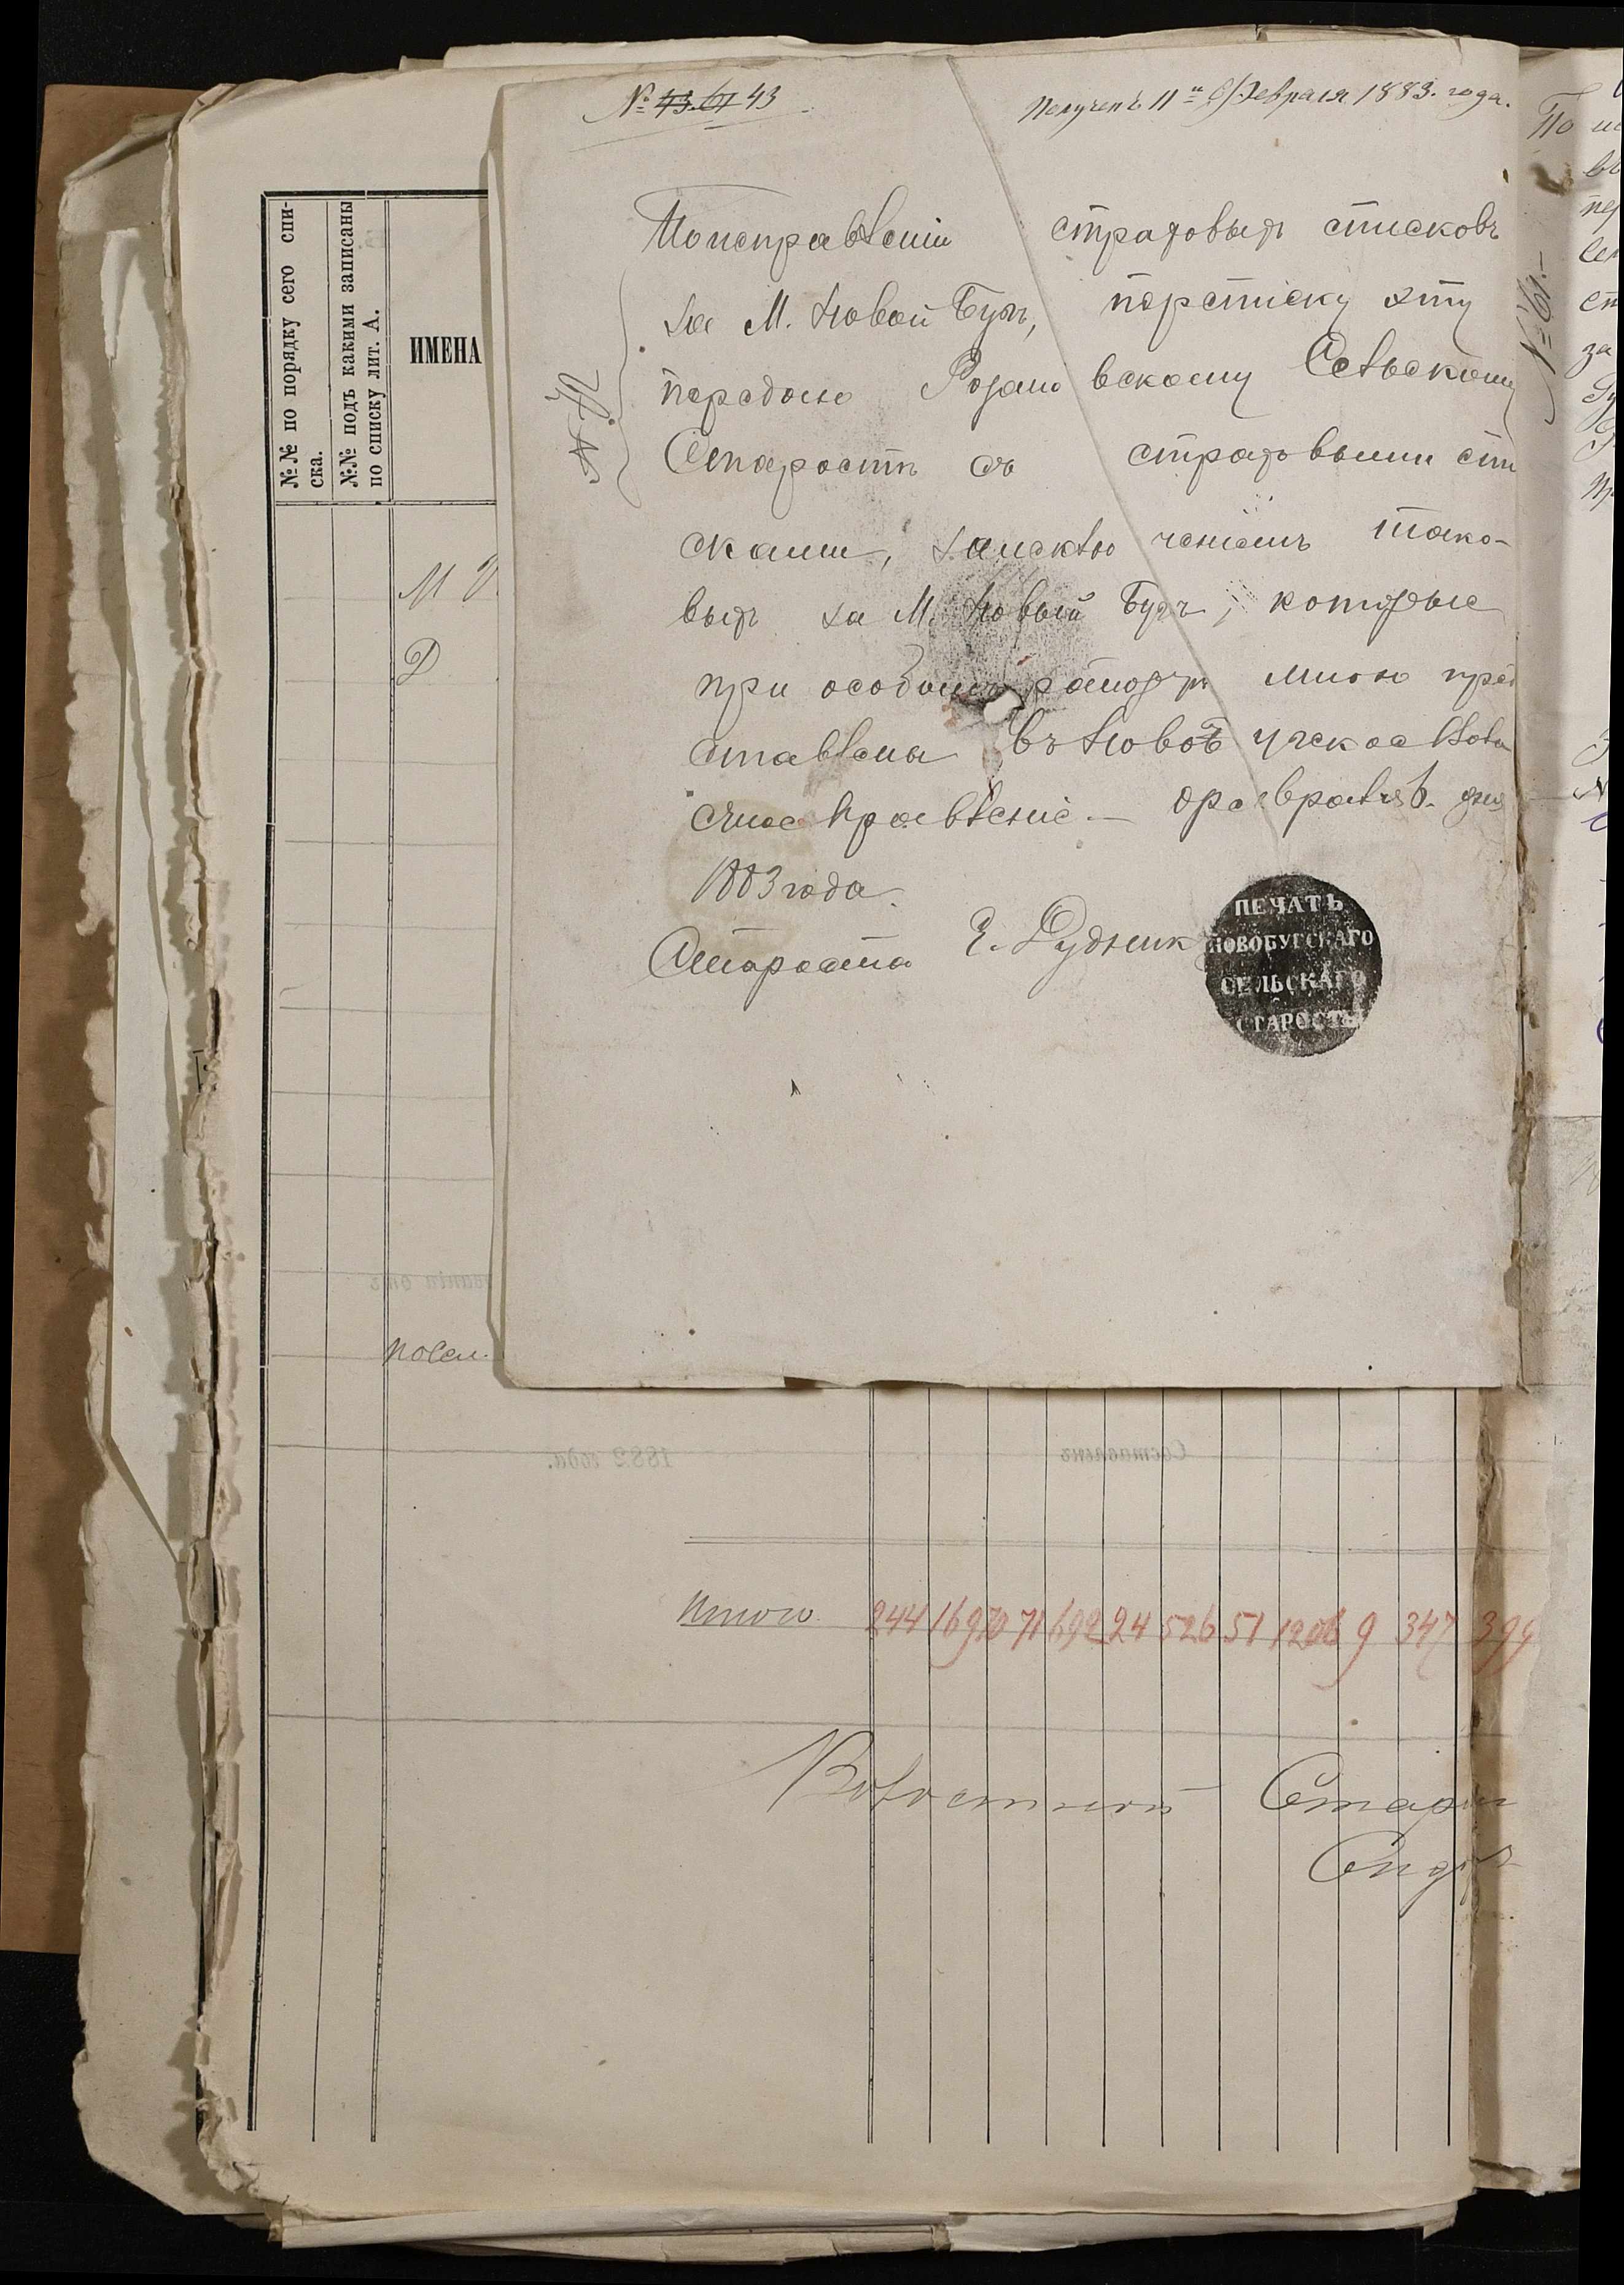 № 43. 61 43
Полученъ 11го Февраля 1883. года.
По исправленіи страховыхъ списковъ
за М. Новой Бугъ, переписку эту
передаю Розановскому Сельскому
Старостѣ съ страховыми спи
сками, заисключеніемъ тако-
выхъ за М. Новый Бугъ, которые
при особомъ рапортѣ мною пред
ставлены въ Новобугское Воло
стное Правленіе. — Февраля 6. дня
1883 года.
Староста Е. Дудник
ПЕЧАТЬ
НОВОБУГСКАГО
СЕЛЬСКАГО
СТАРОСТЫ
№ 61. —
№№ по порядку сего спи-
ска.
№№ подъ какими записаны
по списку лит. А.
ИМЕНА
М
Д
Посел.
1882 года.
Составленъ
Итого 244 1697 71 692 24 526 51 1206 9 347 399
Волостной Старши